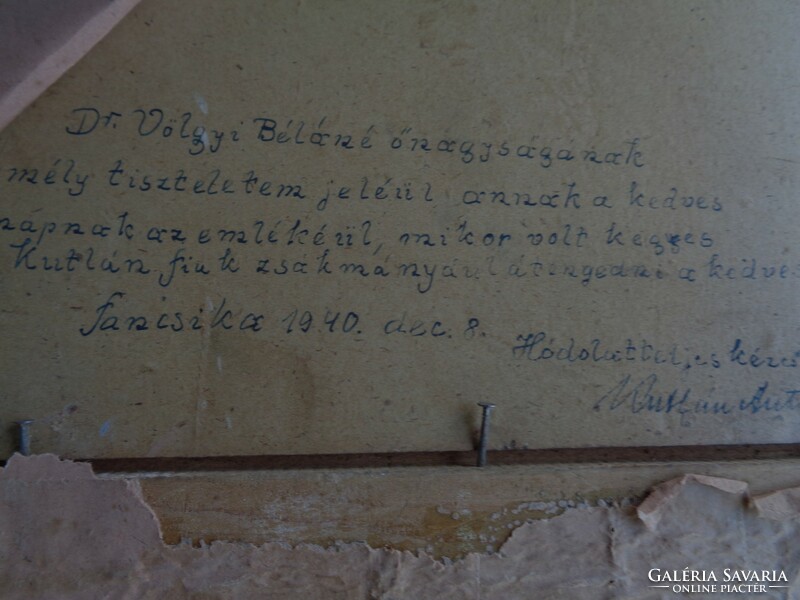 Dr. Völgyi Béláné őnagyságának
mély tiszteletem jeléül annak a kedves
nápnak az emlékéül, mikor volt kegyes
Kutlán fiuk zsákmányául átengedni a kedves
Fancsika 1940. dec. 8.
Hódolattel, és kéz
Kutlán Ant
GALÉRIA SAVARIA
ONLINE PIACTÉR